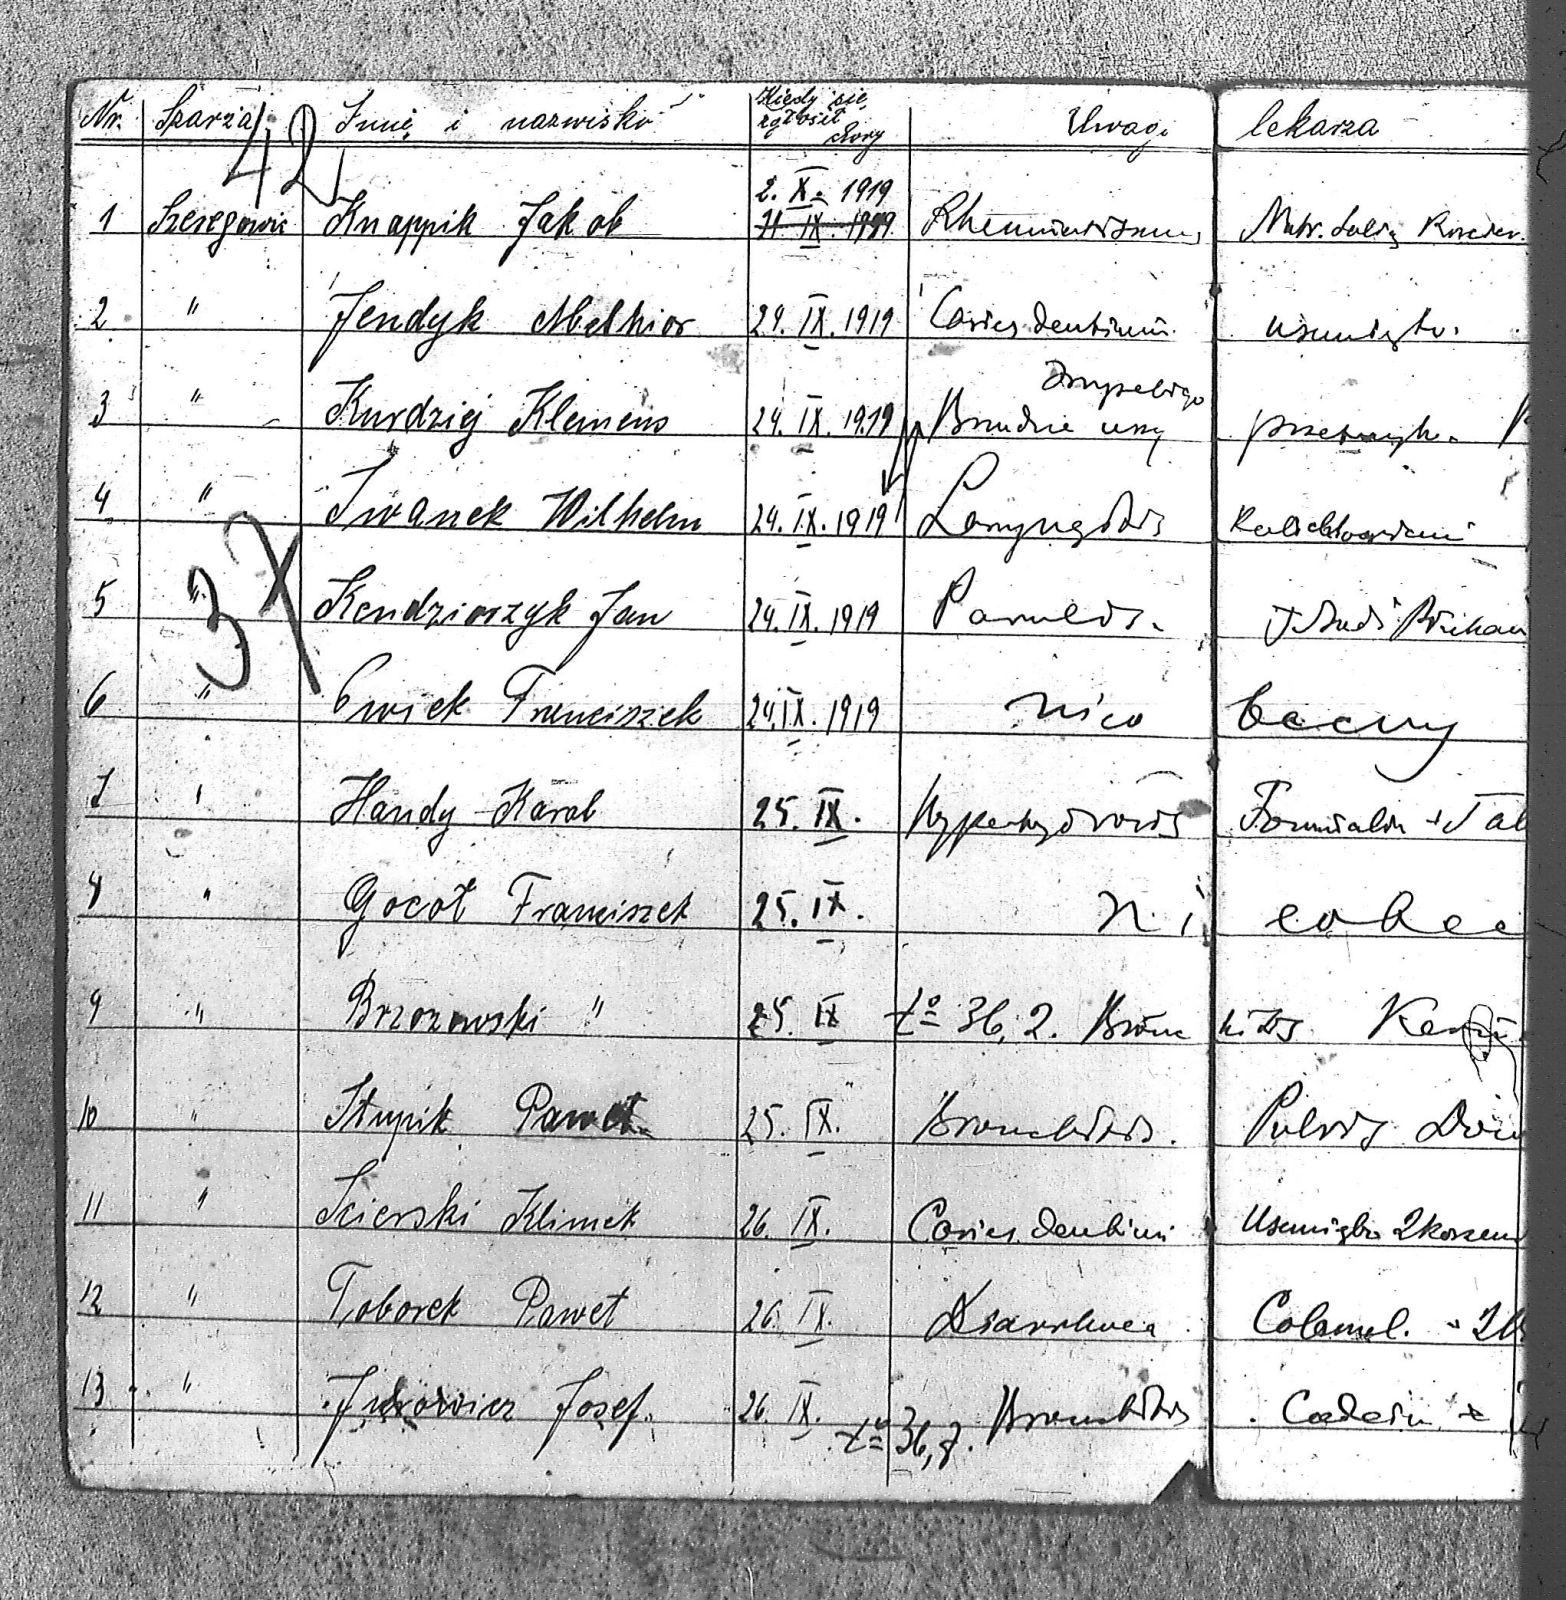 Nr. Szarża Imię i nazwisko Kiedy się zgłosił chory Uwagi lekarza
42
2. X. 1919
1 Szeregowiec Knappik Jakob IX. 1919 Rheumatismus Natr. Salic.
2 " Jendyk Melhior 24. IX. 1919 Caries dentium usunięto.
Impetigo
3 " Kurdziej Klemens 24. IX. 1919 Brudne uszy
4 " Iwanek Wilhelm 24. IX. 1919 Laryngitis
37
5 " Kendziorzyk Jan 24. IX. 1919 Parulis.
6 " Cwiek Franciszek 24. IX. 1919 nieobecny
7 " Handy Karol 25. IX. Hyperhydrosis Formalin + Tal
8 " Gocoł Franciszek 25. IX. ni eobec
9 " Brzozowski " 25. IX t° 36,2. Bronchitis
10 " Stupik Paweł 25. IX. Bronchitis. Pulvis Dow
11 " Scierski Klimek 26. IX. Caries dentium Usunięto 2 korzeni
12 " Toborek Paweł 26. IX. Diarrhoea Calomel.
13 " Josef. 26. IX. t° 36,8. Bronchitis Codein